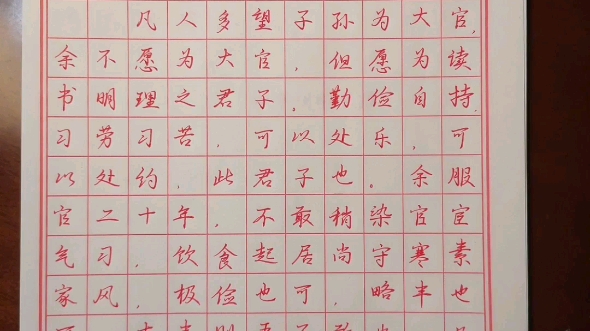 凡人多望子孙为大官,
余不愿为大官,但愿为读
书明理之君子。勤俭自持,
习劳习苦,可以处乐,可
以处约,此君子也。余服
官二十年,不敢稍染官宦
气习,饮食起居尚守寒素
家风,极俭也可,略丰也